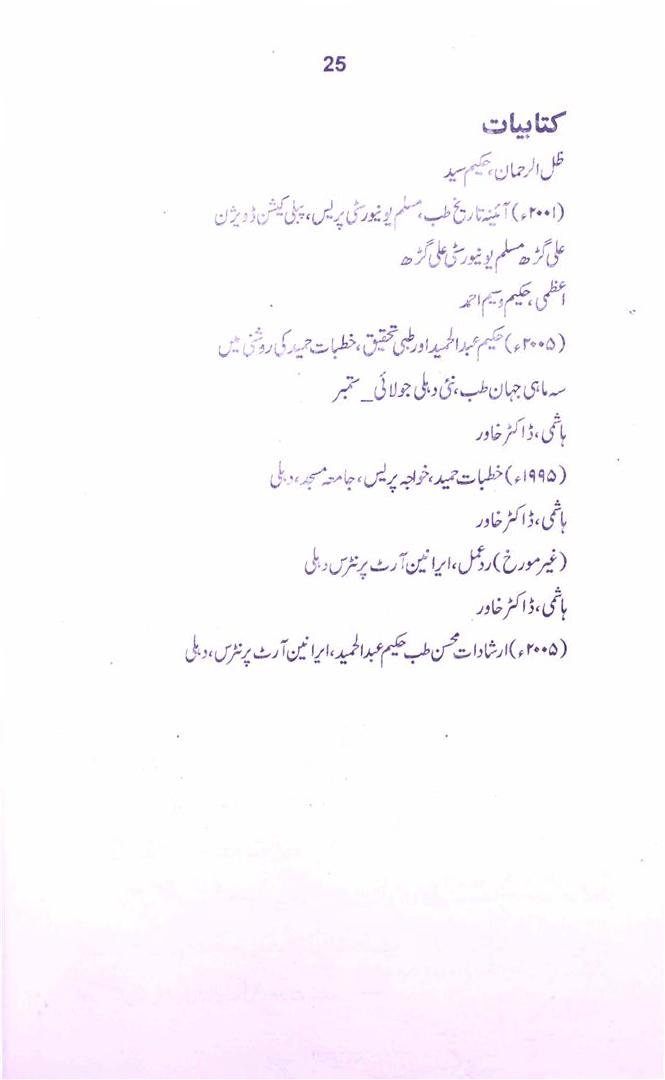 25
کتابیات
ظل الرحمان، حکیم سید
(۲۰۰۱ء) آئینۂ تاریخ طب، مسلم یونیورسٹی پریس، پبلی کیشن ڈویژن
علی گڑھ مسلم یونیورسٹی علی گڑھ
اعظمی، حکیم وسیم احمد
(۲۰۰۵ء) حکیم عبدالحمید اور طبی تحقیق، خطبات حمید کی روشنی میں
سہ ماہی جہان طب، نئی دہلی جولائی_ ستمبر
ہاشمی، ڈاکٹر خاور
(۱۹۹۵ء) خطبات حمید، خواجہ پریس، جامعہ مسجد، دہلی
ہاشمی، ڈاکٹر خاور
(غیر مورخ) ردعمل، ایرانین آرٹ پرنٹرس دہلی
ہاشمی، ڈاکٹر خاور
(۲۰۰۵ء) ارشادات محسن طب حکیم عبدالحمید، ایرانین آرٹ پرنٹرس، دہلی